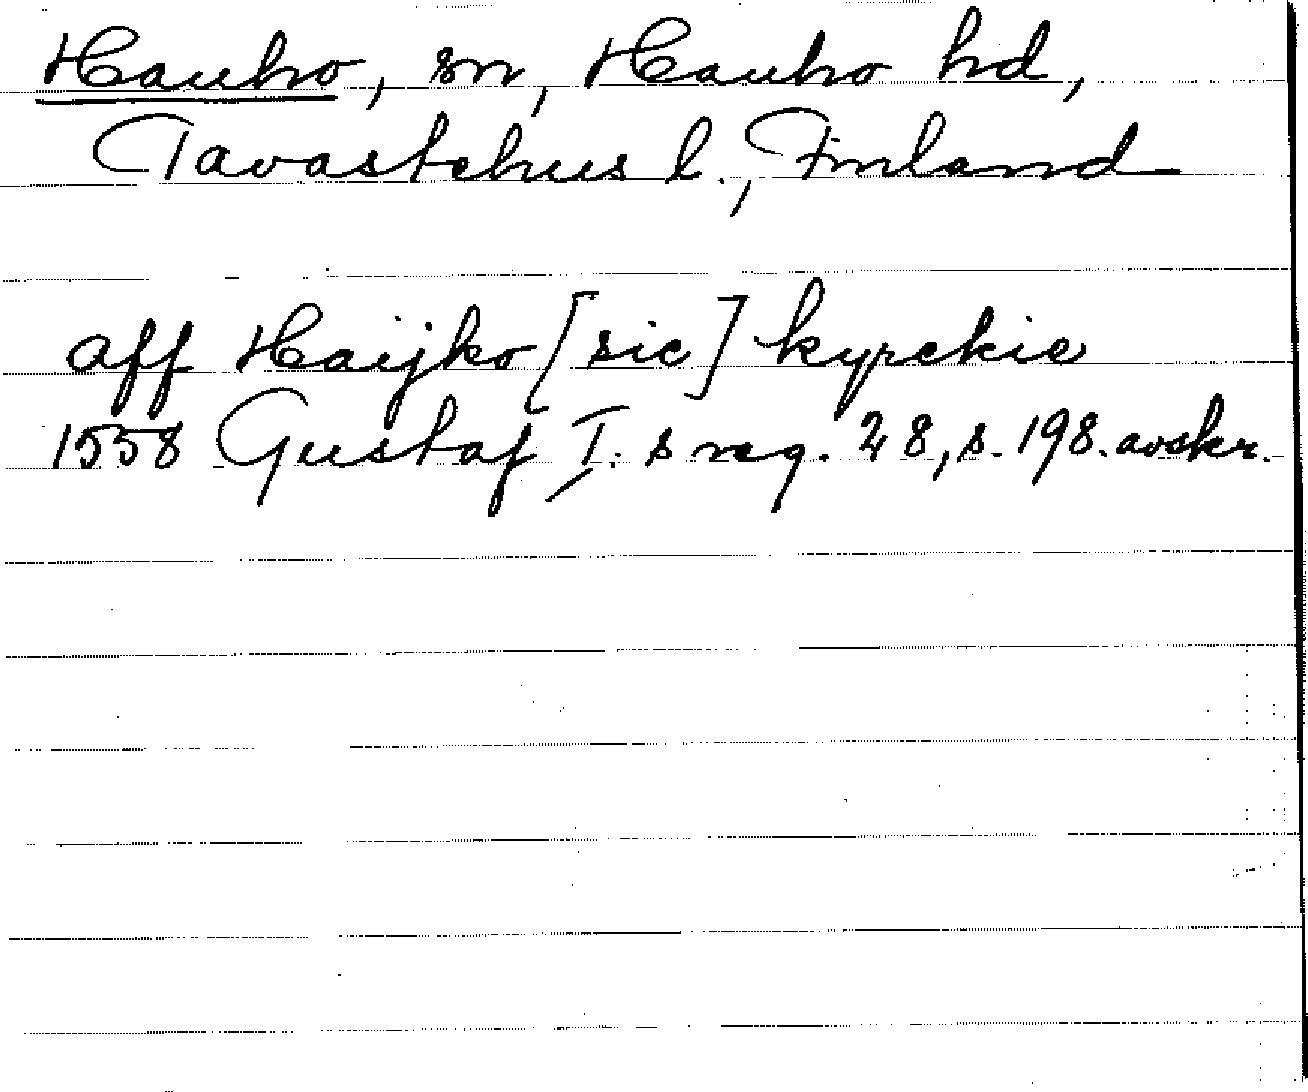 Hauho, sn, Hauho hd,
Tavastehus l., Finland
aff Haijko [sic] kyrckie
1558 Gustaf I. s reg. 28, s. 198. avskr.